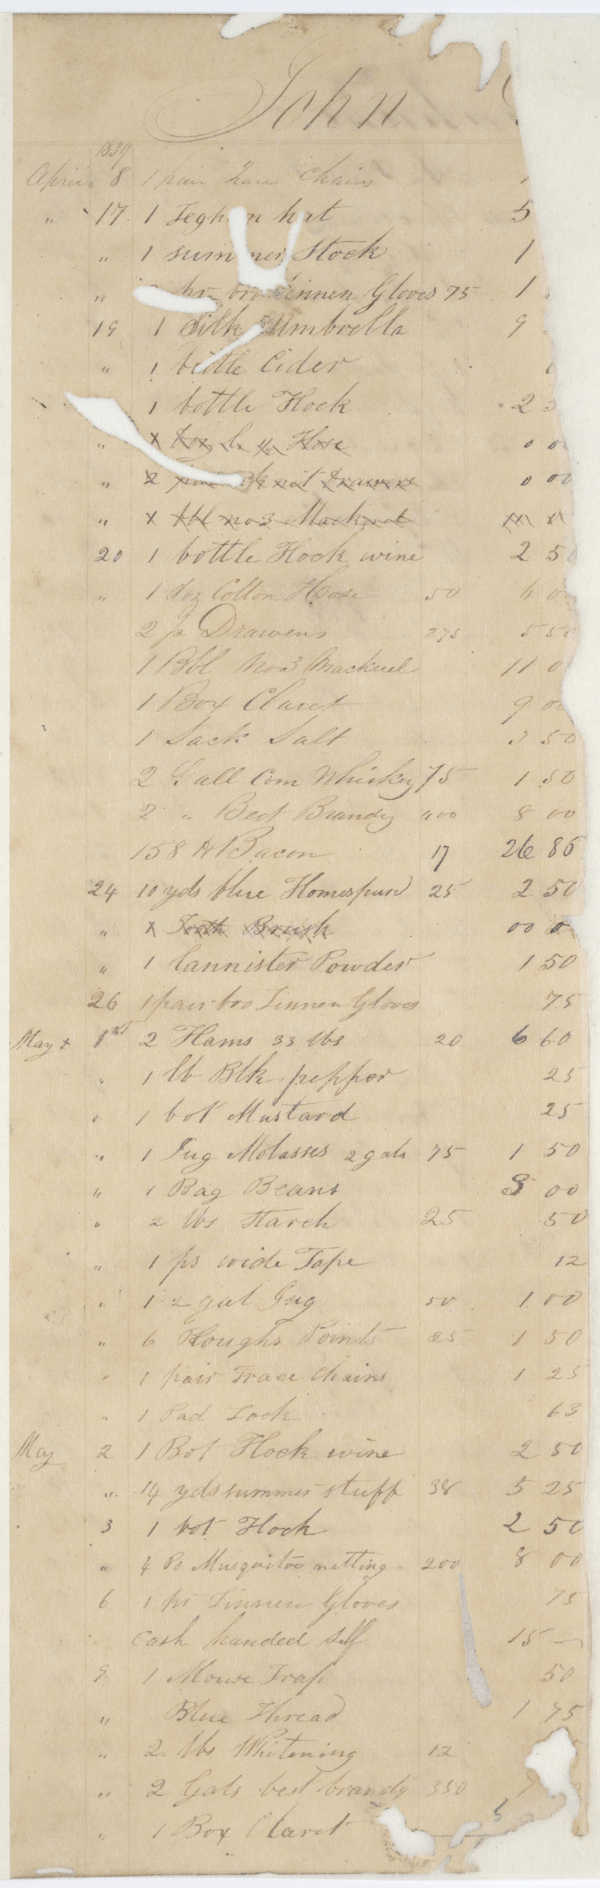 John
1839
April 8 1 pair Trace Chains 1
" 17. 1 Leghorn hat 5
" 1 summer Stock 1
" pr Linnen Gloves 75 1
19 1 Silk Umbrella 9
" 1 bottle Cider
1 bottle Hock 2
" x Hose 0 0
" 2 knit Drawers 0 00
" x bbl no 3 Mackerel
20 1 bottle Hock wine 2 50
" 1 doz Cotton Hose 50 6 0
2 ps Drawers 275 5 50
1 Bbl No3 Mackerel 11 0
1 Box Claret 9 00
1 Sack Salt 3 50
2 Gall Corn Whiskey 75 1 50
2 " Best Brandy 400 8 00
158 # Bacon 17 26 86
24 10 yds blue Homespun 25 2 50
" x Tooth Brush 00 0
" 1 Cannister Powder 1 50
26 1 pair Linnen Gloves 75
May x 1st 2 Hams 33 lbs 20 6 60
" 1 lb Blk pepper 25
" 1 bot Mustard 25
" 1 Jug Molasses 2 gals 75 1 50
" 1 Bag Beans 3 00
" 2 lbs Starch 25 50
" 1 ps wide Tape 12
" 1 2 gal Jug 50 1 00
" 6 Ploughs Points 25 1 50
" 1 pair Trace Chains 1 25
" 1 Pad Lock 63
May 2 1 Bot Hock wine 2 50
" 14 yds summer stuff 38 5 25
3 1 bot Hock 2 50
" 4 Ps Musquitoe netting 200 8 00
6 1 pr Linnen Gloves 75
Cash handed Self 15 —
9 1 Mouse Trap 50
" Blue Thread 1 75
" 2 lbs Whitening 12
" 2 Gals best brandy 350 7
" 1 Box Claret